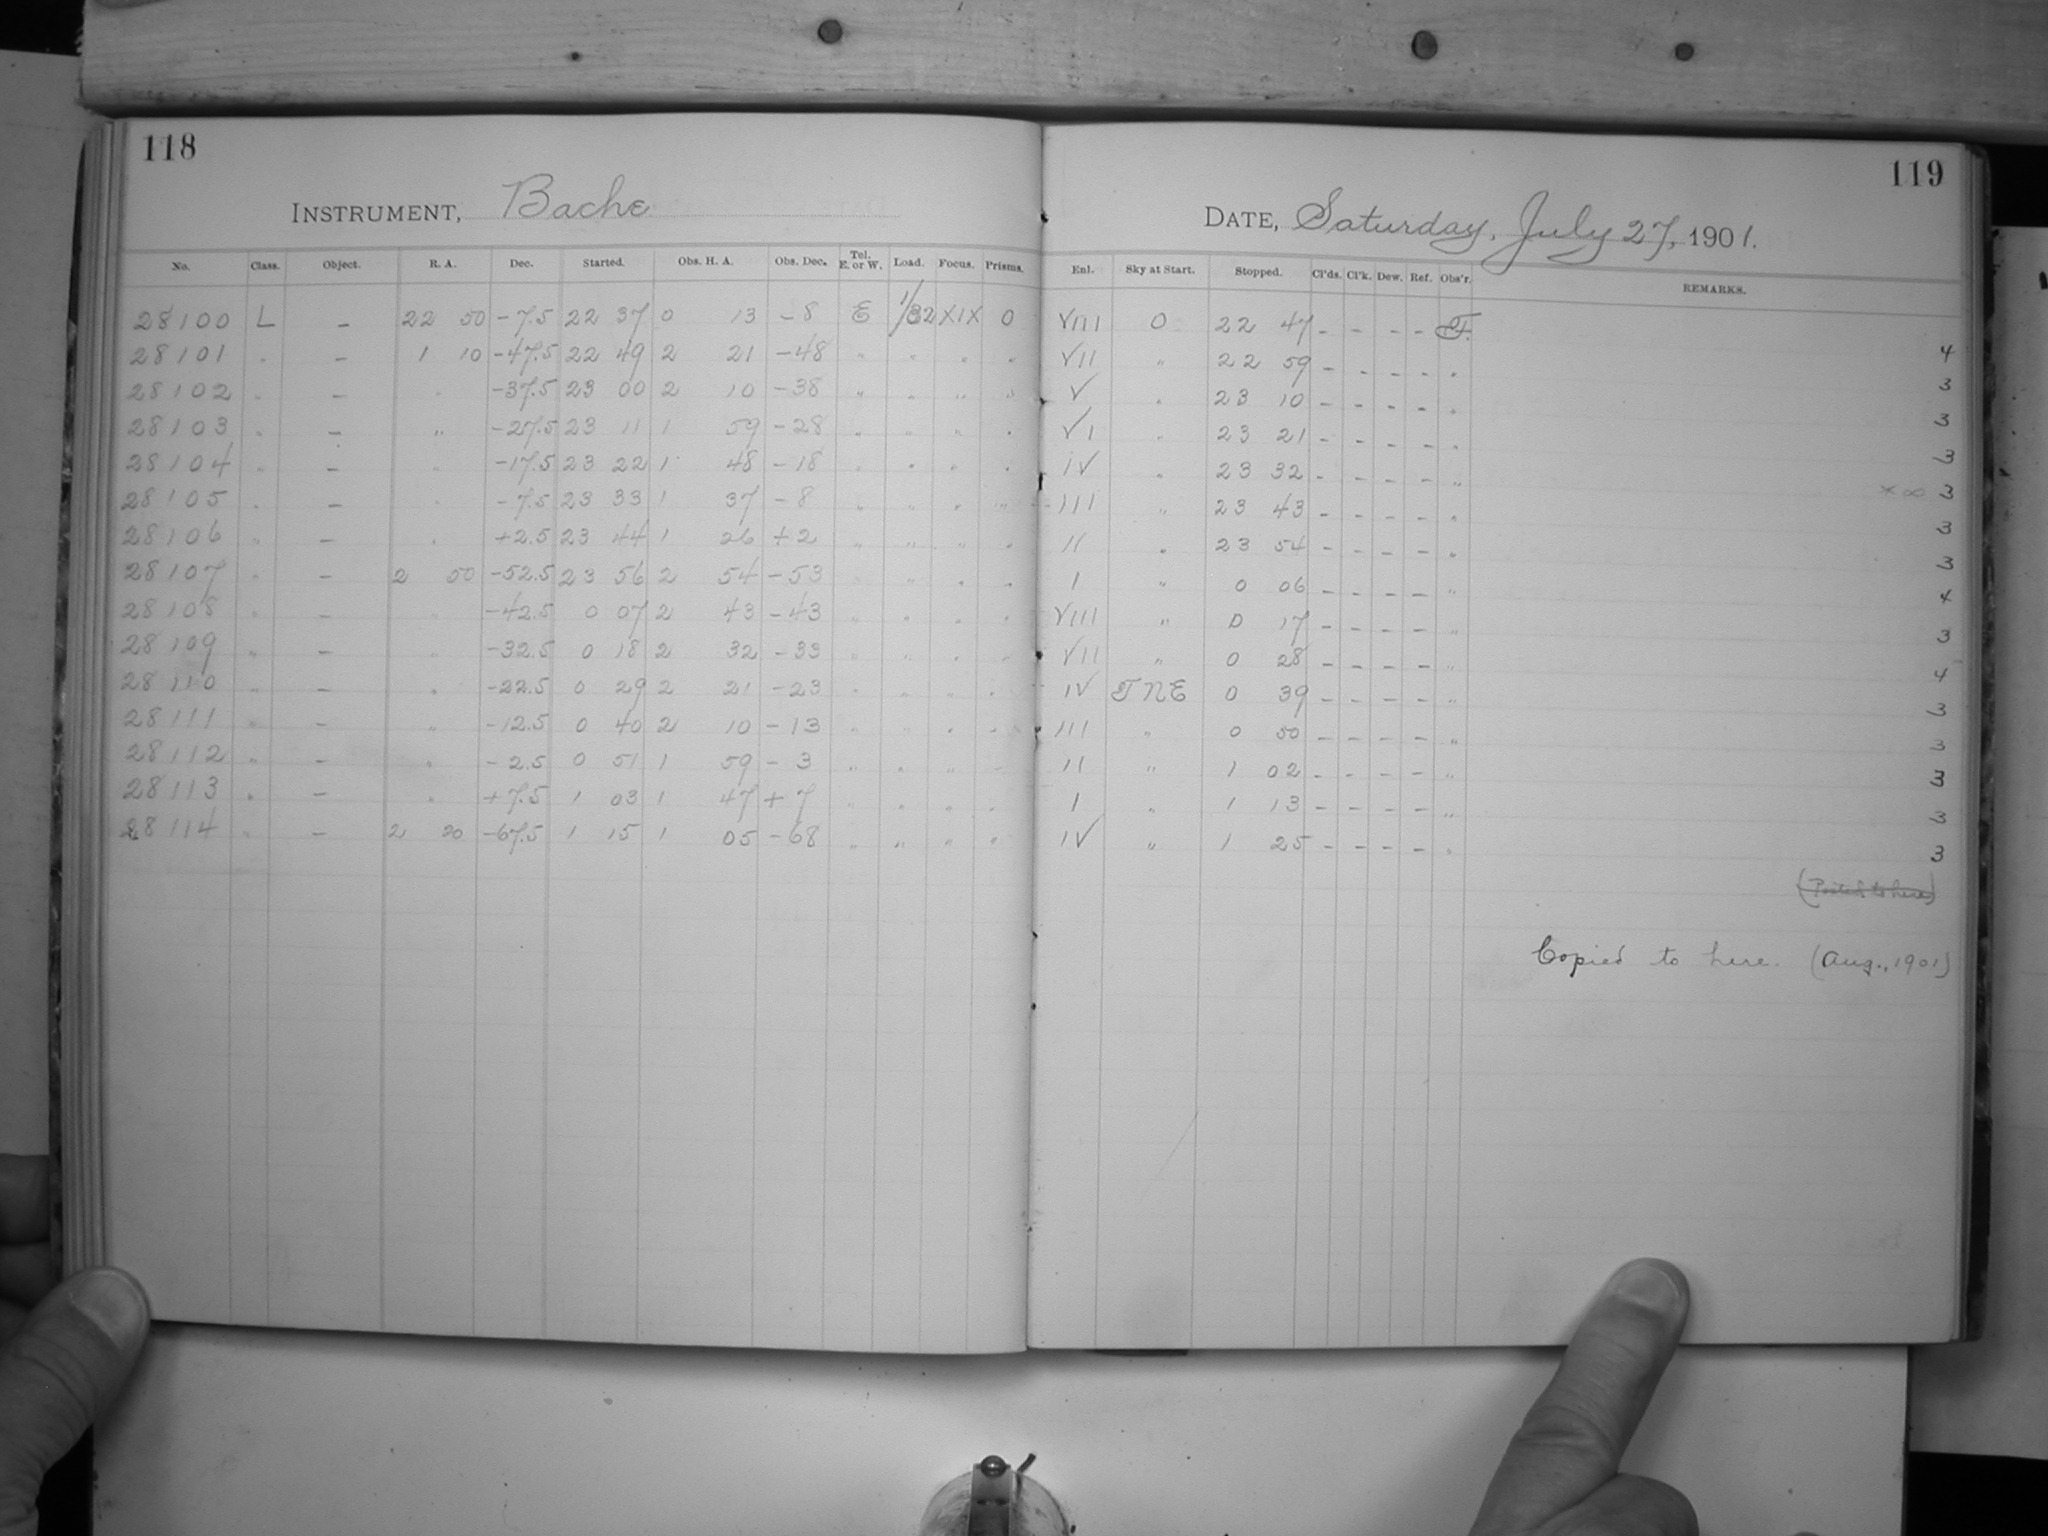 118
INSTRUMENT, Bache
No. Class. Object. R. A. Dec. Started. Obs. H. A. Obs. Dec. Tel. E. or W. Load. Focus. Prisms.
28100 L - 22 50 -7.5 22 37 0 13 -8 E 1/32 XIX 0
28101 " - 1 10 -47.5 22 49 2 21 -48 " " " "
28102 " - " -37.5 23 00 2 10 -38 " " " "
28103 " - " -27.5 23 11 1 59 -28 " " " "
28104 " - " -17.5 23 22 1 48 -18 " " " "
28105 " - " -7.5 23 33 1 37 -8 " " " "
28106 " - " +2.5 23 44 1 26 +2 " " " "
28107 " - 2 50 -52.5 23 56 2 54 -53 " " " "
28108 " - " -42.5 0 07 2 43 -43 " " " "
28109 " - " -32.5 0 18 2 32 -33 " " " "
28110 " - " -22.5 0 29 2 21 -23 " " " "
28111 " - " -12.5 0 40 2 10 -13 " " " "
28112 " - " -2.5 0 51 1 59 -3 " " " "
28113 " - " +7.5 1 03 1 47 +7 " " " "
28114 " - 2 20 -67.5 1 15 1 05 -68 " " " "
119
DATE, Saturday, July 27, 1901.
Enl. Sky at Start. Stopped. Cl'ds. Cl'k. Dew. Ref. Obs'r. REMARKS.
VIII 0 22 47 - - - - F. 4
VII " 22 59 - - - - " 3
V " 23 10 - - - - " 3
VI " 23 21 - - - - " 3
IV " 23 32 - - - - " × ∞ 3
III " 23 43 - - - - " 3
II " 23 54 - - - - " 3
I " 0 06 - - - - " 4
VIII " 0 17 - - - - " 3
VII " 0 28 - - - - " 4
IV F NE 0 39 - - - - " 3
III " 0 50 - - - - " 3
II " 1 02 - - - - " 3
I " 1 13 - - - - " 3
IV " 1 25 - - - - " 3
(Posted to here)
Copied to here. (Aug., 1901)